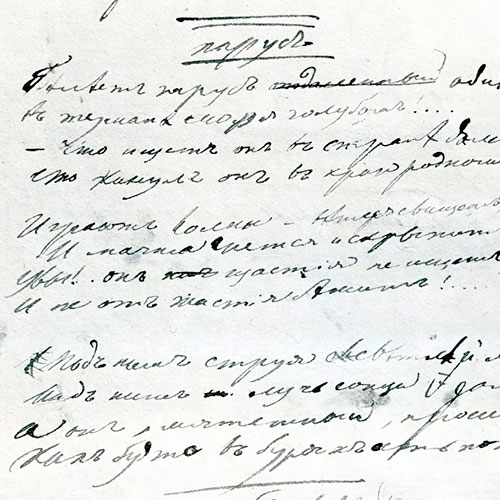 парусъ.
Бѣлѣетъ парусъ отдаленный оди
Въ туманѣ моря голубомъ!....
— Что ищетъ онъ въ странѣ дале
Что кинулъ онъ въ краю родномъ
Играютъ волны — вѣтеръ свищетъ
И мачта гнется и скрыпит
Увы!.. онъ счастія не ищетъ
И не отъ счастія бѣжитъ!....
Подъ нимъ струя свѣтлѣй л
Надъ нимъ лучь солнца
а онъ, мятежный, проси
Какъ будто въ буряхъ есть по